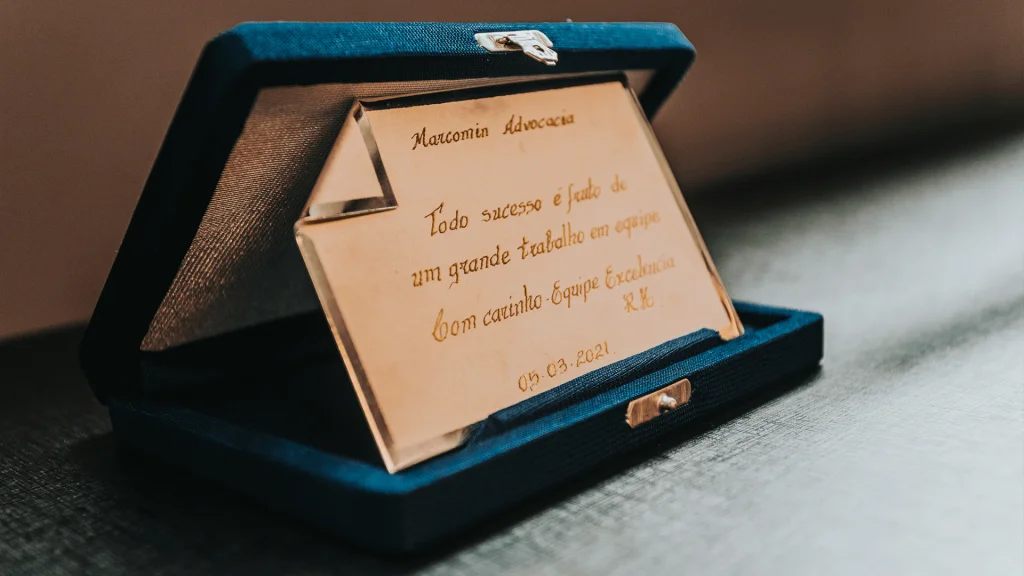 Marcomin Advocacia
Todo sucesso é fruto de
um grande trabalho em equipe
Com carinho - Equipe Excelência
05.03.2021